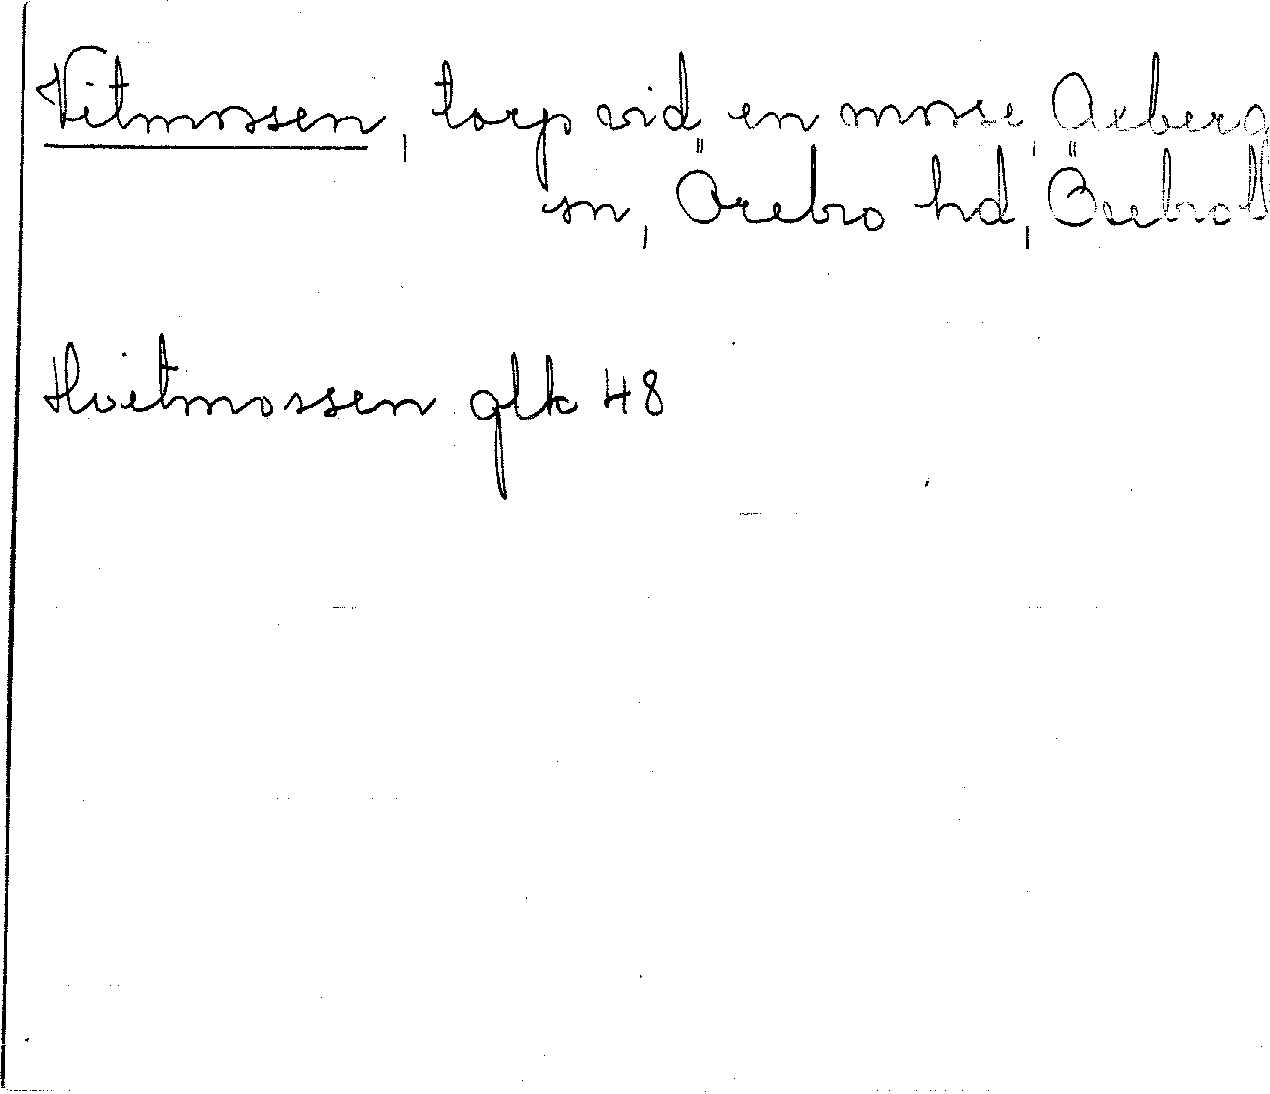 Vitmossen, torp vid en mosse, Axberg
sn, Örebro hd, Örebro l
Hvitmossen glk 48